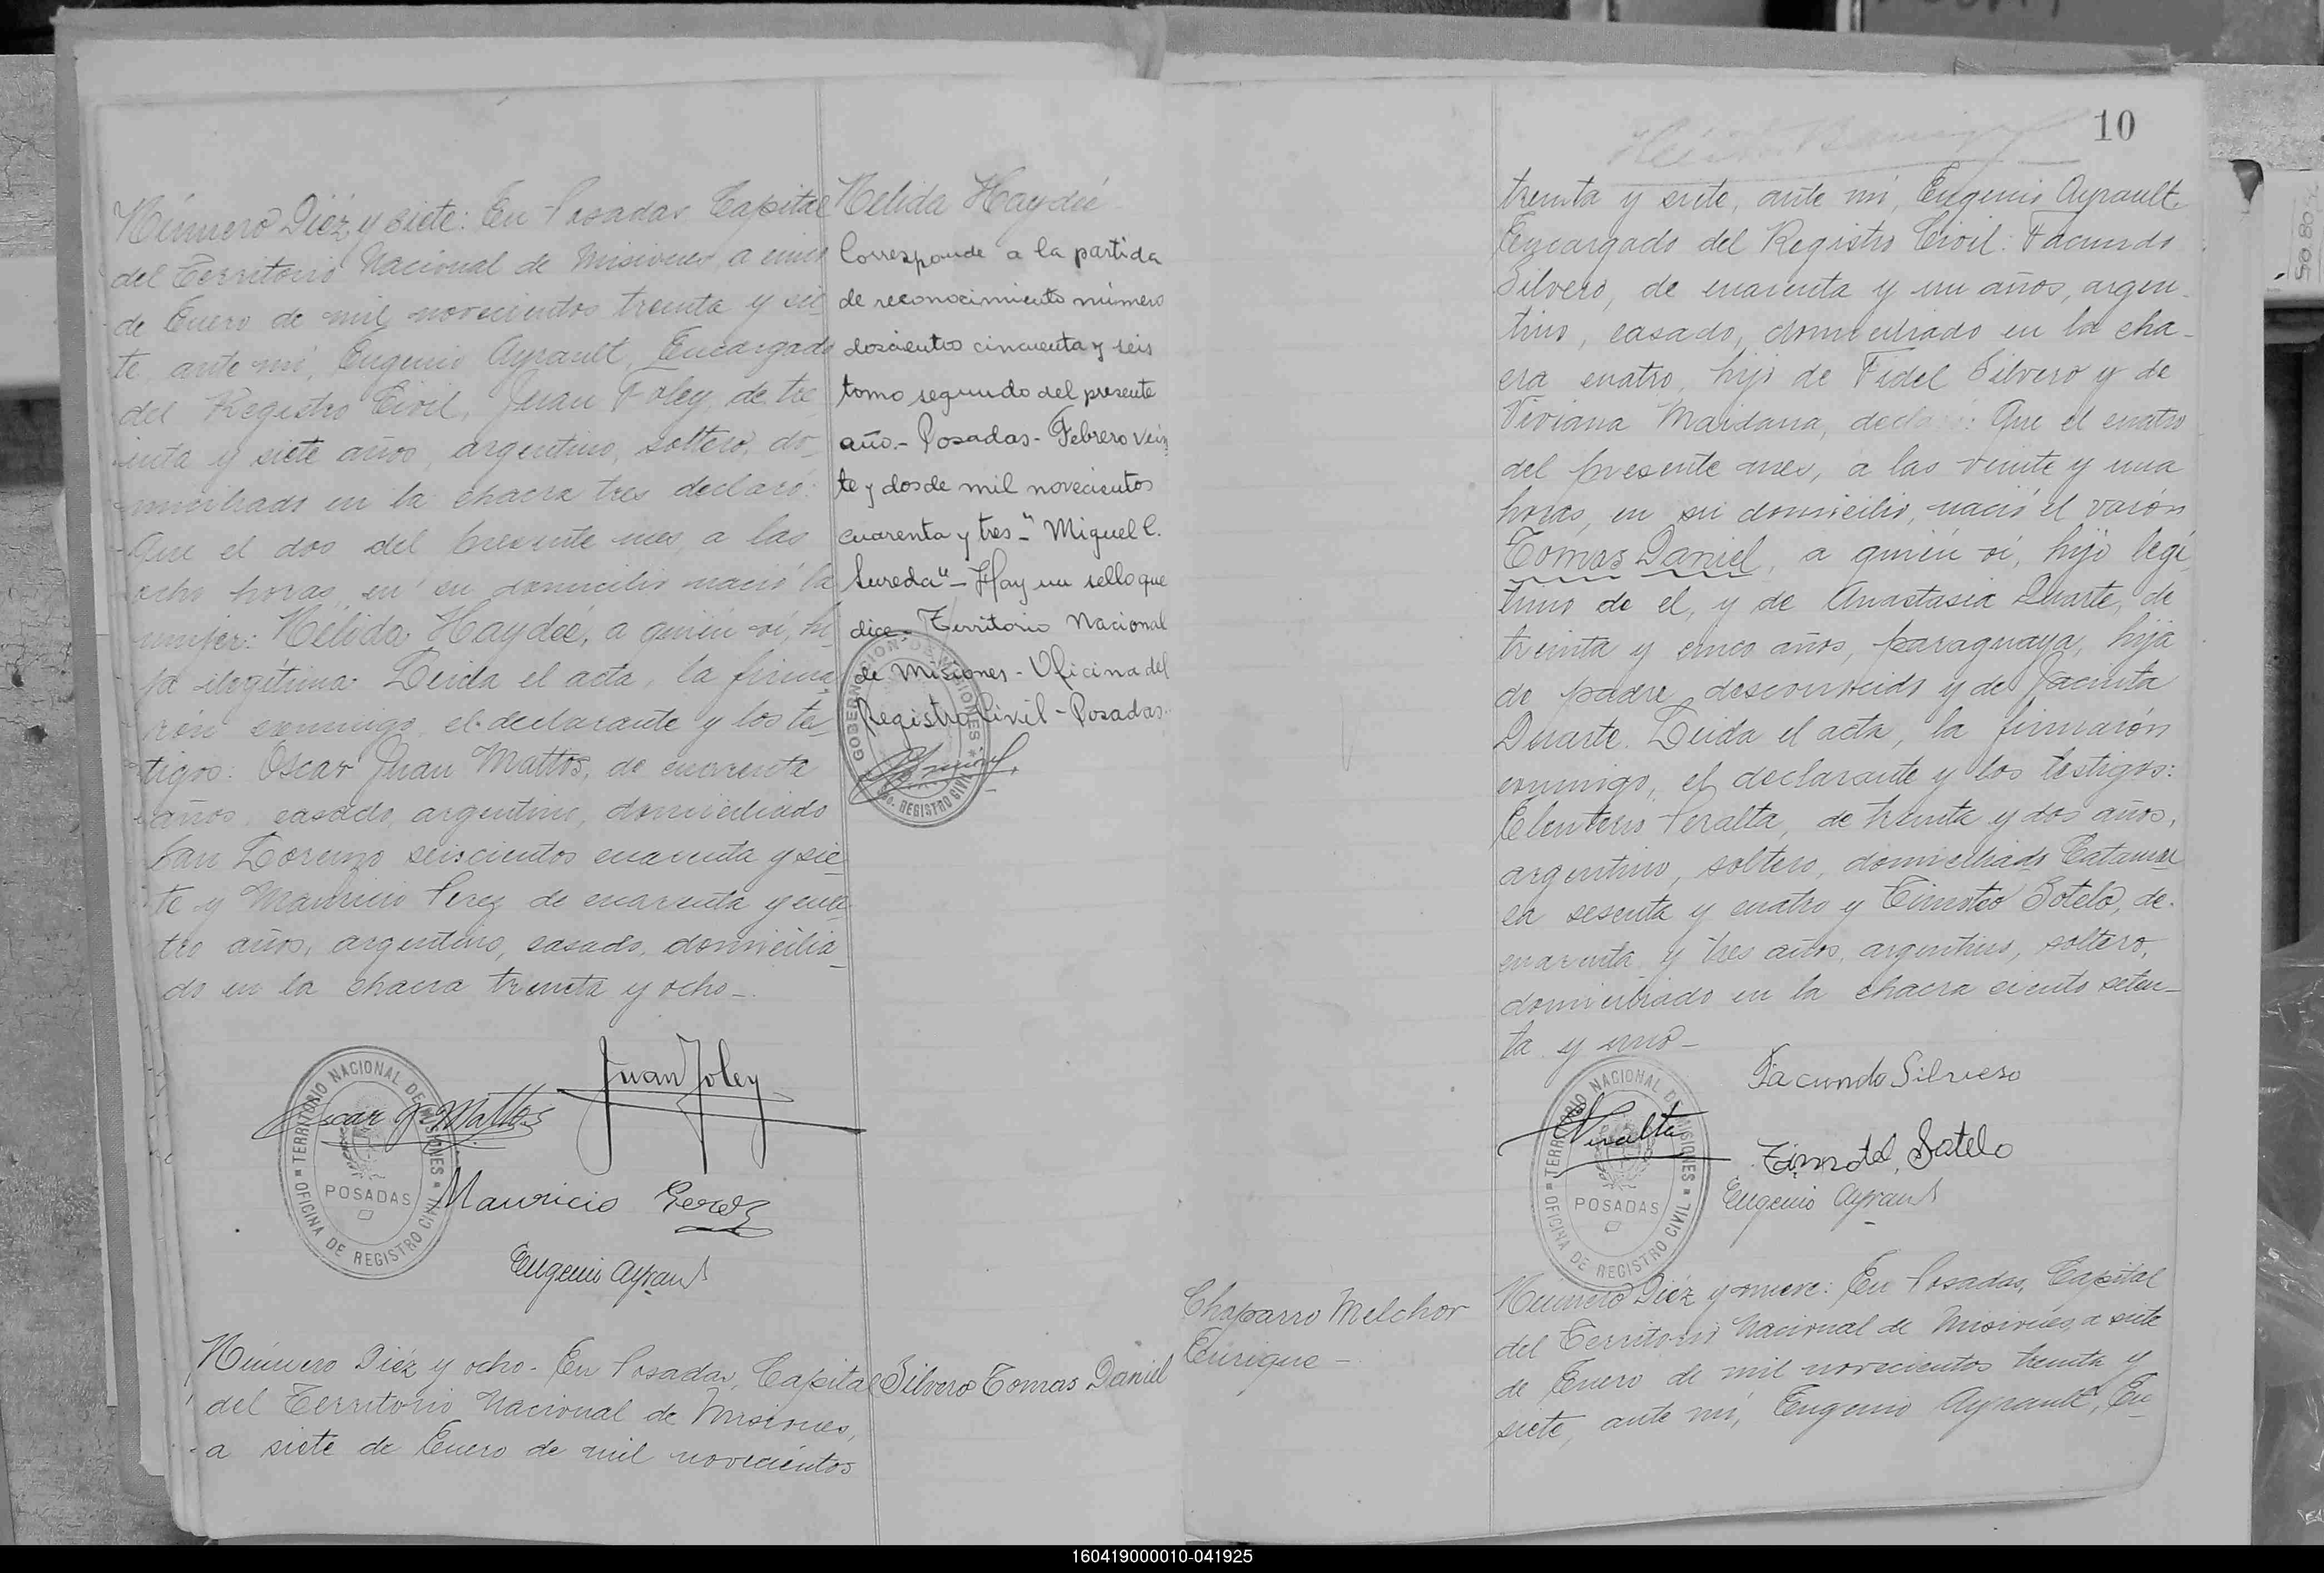 Número Diéz y siete: En Posadas Capital
del Territorio Nacional de Misiones, a cinco
de Enero de mil novecientos treinta y sie-
te, ante mi, Eugenio Ayrault, Encargado
del Registro Civil, Juan Foley, de tre
inta y siete años, argentino, soltero, do-
miciliado en la chacra tres declaró:
Que el dos del presente mes, a las
ocho horas, en su domicilio nació la
mujer: Nélida Haydée, a quién ví, hi-
ja ilegítima. Leida el acta, la firma-
rón conmigo, el declarante y los tes-
tigos: Oscar Juan Mattos, de cuarenta
años, casado, argentino, domiciliado
San Lorenzo seiscientos cuarenta y sie-
te y Mauricio Perez de cuarenta y cua-
tro años, argentino, casado, domicilia-
do en la chacra treinta y ocho-
Juan Foley
Oscar J. Mattos
TERRITORIO NACIONAL DE MISIONES
POSADAS
OFICINA DE REGISTRO CIVIL
Mauricio Perez
Eugenio Ayrault
Número Diéz y ocho- En Posadas, Capital
del Territorio Nacional de Misiones,
a siete de Enero de mil novecientos
Nelida Haydée
Corresponde a la partida
de reconocimiento número
doscientos cincuenta y seis
tomo segundo del presente
año.- Posadas- Febrero vein
te y dos de mil novecientos
cuarenta y tres-" Miguel C.
Sureda"- Hay un sello que
dice- Territorio Nacional
de Misiones- Oficina del
Registro Civil- Posadas.
GOBERNACION DE MISIONES
REGISTRO CIVIL
Silvero Tomas Daniel
10
treinta y siete, ante mi, Eugenio Ayrault
Encargado del Registro Civil: Facundo
Silvero, de cuarenta y un años, argen-
tino, casado, domiciliado en la cha-
cra cuatro, hijo de Fidel Silvero y de
Viviana Maidana, declaró: Que el cuatro
del presente mes, a las veinte y una
horas, en su domicilio, nació el varón
Tomás Daniel, a quién ví, hijo legí
timo de el, y de Anastasia Duarte, de
treinta y cinco años, paraguaya, hija
de padre desconocido y de Jacinta
Duarte. Leida el acta, la firmarón
conmigo, el declarante y los testigos:
Eleuterio Peralta, de treinta y dos años,
argentino, soltero, domiciliado Catamar
ca sesenta y cuatro y Timoteo Sotelo, de
cuarenta y tres años, argentino, soltero,
domiciliado en la chacra ciento seten-
ta y uno-
Facundo Silvero
Peralta
Timoteo Sotelo
Eugenio Ayrault
TERRITORIO NACIONAL DE MISIONES
POSADAS
OFICINA DE REGISTRO CIVIL
Chaparro Melchor
Enrique-
Número Diéz y nueve: En Posadas, Capital
del Territorio Nacional de Misiones, a siete
de Enero de mil novecientos treinta y
siete, ante mi, Eugenio Ayrault, En-
160419000010-041925